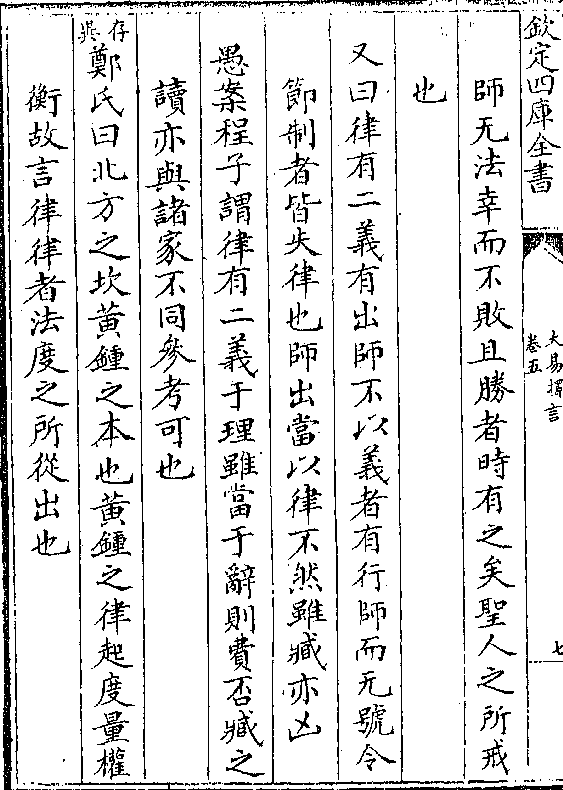 欽定四庫全書
大易擇言
卷五
七
師无法幸而不敗且勝者時有之矣聖人之所戒
也
又曰律有二義有出師不以義者有行師而无號令
節制者皆失律也師出當以律不然雖臧亦凶
愚案程子謂律有二義于理雖當于辭則費否臧之
讀亦與諸家不同參考可也
存異
鄭氏曰北方之坎黃鍾之本也黃鍾之律起度量權
衡故言律律者法度之所從出也